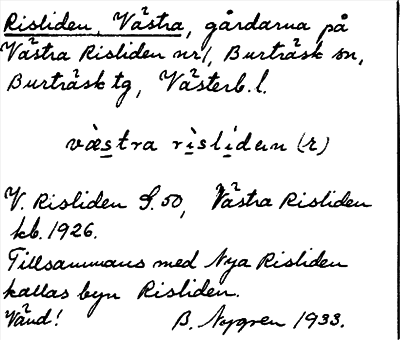 Risliden, Västra, gårdarna på
Västra Risliden nr 1, Burträsk sn,
Burträsk tg, Västerb. l.
væ̀stra rìslìdən (r)
V. Risliden S. 50, Västra Risliden
kb. 1926.
Tillsammans med Nya Risliden
kallas byn Risliden.
Vänd! B. Nygren 1933.